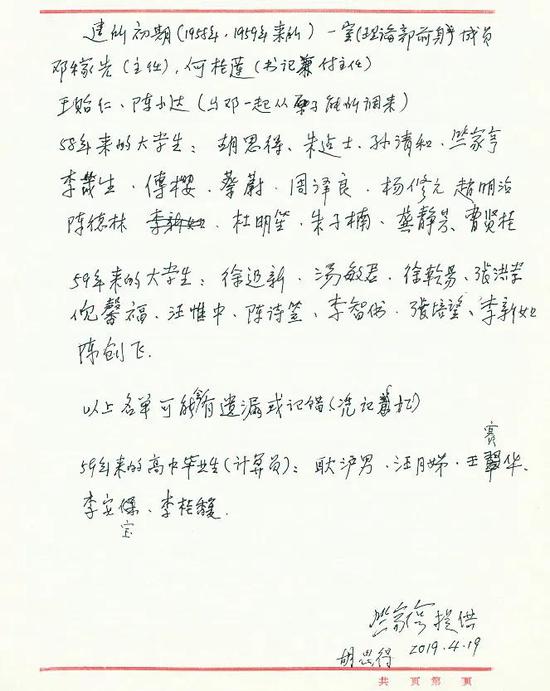 建所初期(1958年,1959年来的)一室(理论部前身)成员
邓稼先(主任),何桂莲(书记兼付主任)
王贻仁、陈 达(与邓一起从原子能所调来)
58年来的大学生:胡思得、朱 士、孙清和、竺家亨
李 生、傅樱、蔡蔚、周泽良、杨修 赵明治
陈德林 李新 、杜明笙、朱子楠、 静 、曹贤桂
59年来的大学生:徐迺新、汤敏君、徐乾易、张洪
倪馨福、汪惟中、陈诗 、李智 、张培 、李新
陈创飞.
以上名单可能有遗漏或记错(凭记忆)
赛
59年来的高中毕业生(计算员):耿沪男、汪月娣、王 华、
李安保、李桂馥.
宝
竺家亨提供
胡思得 2019.4.19
共 页 第 页